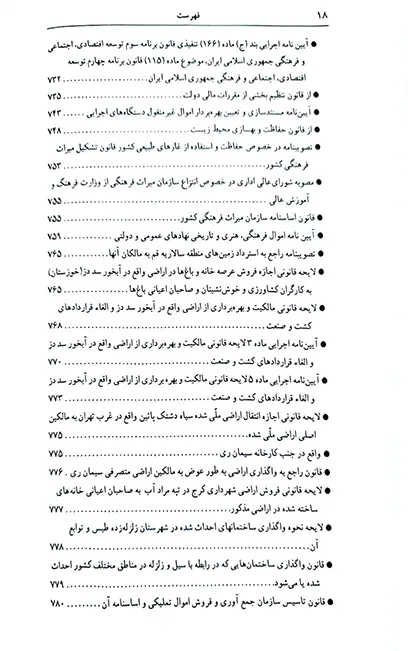 ۱۸ فهرست
● آیین نامه اجرایی بند (ج) ماده (۱۶۶) تنفیذی قانون برنامه سوم توسعه اقتصادی، اجتماعی
و فرهنگی جمهوری اسلامی ایران، موضوع ماده (۱۱۵) قانون برنامه چهارم توسعه
اقتصادی، اجتماعی و فرهنگی جمهوری اسلامی ایران ۷۳۲
● از قانون تنظیم بخشی از مقررات مالی دولت ۷۳۵
● آیین‌نامه مستندسازی و تعیین بهره‌بردار اموال غیرمنقول دستگاه‌های اجرایی ۷۴۳
● از قانون حفاظت و بهسازی محیط زیست ۷۴۸
● تصویبنامه در خصوص حفاظت و استفاده از غارهای طبیعی کشور قانون تشکیل میراث
فرهنگی کشور ۷۵۳
● مصوبه شورای‌عالی اداری در خصوص انتزاع سازمان میراث فرهنگی از وزارت فرهنگ و
آموزش عالی ۷۵۵
● قانون اساسنامه سازمان میراث فرهنگی کشور ۷۵۵
● آیین نامه اموال فرهنگی، هنری و تاریخی نهادهای عمومی و دولتی ۷۵۹
● تصویبنامه راجع به استرداد زمین‌های منطقه سالاریه قم به مالکان آنها ۷۶۵
● لایحه قانونی اجازه فروش عرصه خانه و باغ‌ها در اراضی واقع در آبخور سد دز(خوزستان)
به کارگران کشاورزی و خوش‌نشینان و صاحبان اعیانی باغ‌ها ۷۶۵
● لایحه قانونی مالکیت و بهره‌برداری از اراضی واقع در آبخور سد دز و الغاء قراردادهای
کشت و صنعت ۷۶۸
● آیین‌نامه اجرایی ماده ۳ لایحه قانونی مالکیت و بهره‌برداری از اراضی واقع در آبخور سد دز
و الغاء قراردادهای کشت و صنعت ۷۷۰
● آیین‌نامه اجرایی ماده ۵ لایحه قانونی مالکیت و بهره‌برداری از اراضی واقع در آبخور سد دز
و الغاء قراردادهای کشت و صنعت ۷۷۳
● لایحه قانونی اجازه انتقال اراضی ملی شده سیاه دشتک پائین واقع در غرب تهران به مالکین
اصلی اراضی ملّی شده ۷۷۵
● واقع در جنب کارخانه سیمان ری ۷۷۵
● قانون راجع به واگذاری اراضی به طور عوض به مالکین اراضی متصرفی سیمان ری ۷۷۶
● لایحه قانونی فروش اراضی شهرداری کرج در تپه مراد آب به صاحبان اعیانی خانه‌های
ساخته شده در اراضی مذکور ۷۷۷
● لایحه نحوه واگذاری ساختمانهای احداث شده در شهرستان زلزله‌زده طبس و توابع
آن ۷۷۸
● قانون واگذاری ساختمان‌هایی که در رابطه با سیل و زلزله در مناطق مختلف کشور احداث
شده یا می‌شود ۷۷۹
● قانون تاسیس سازمان جمع آوری و فروش اموال تملیکی و اساسنامه آن ۷۸۰